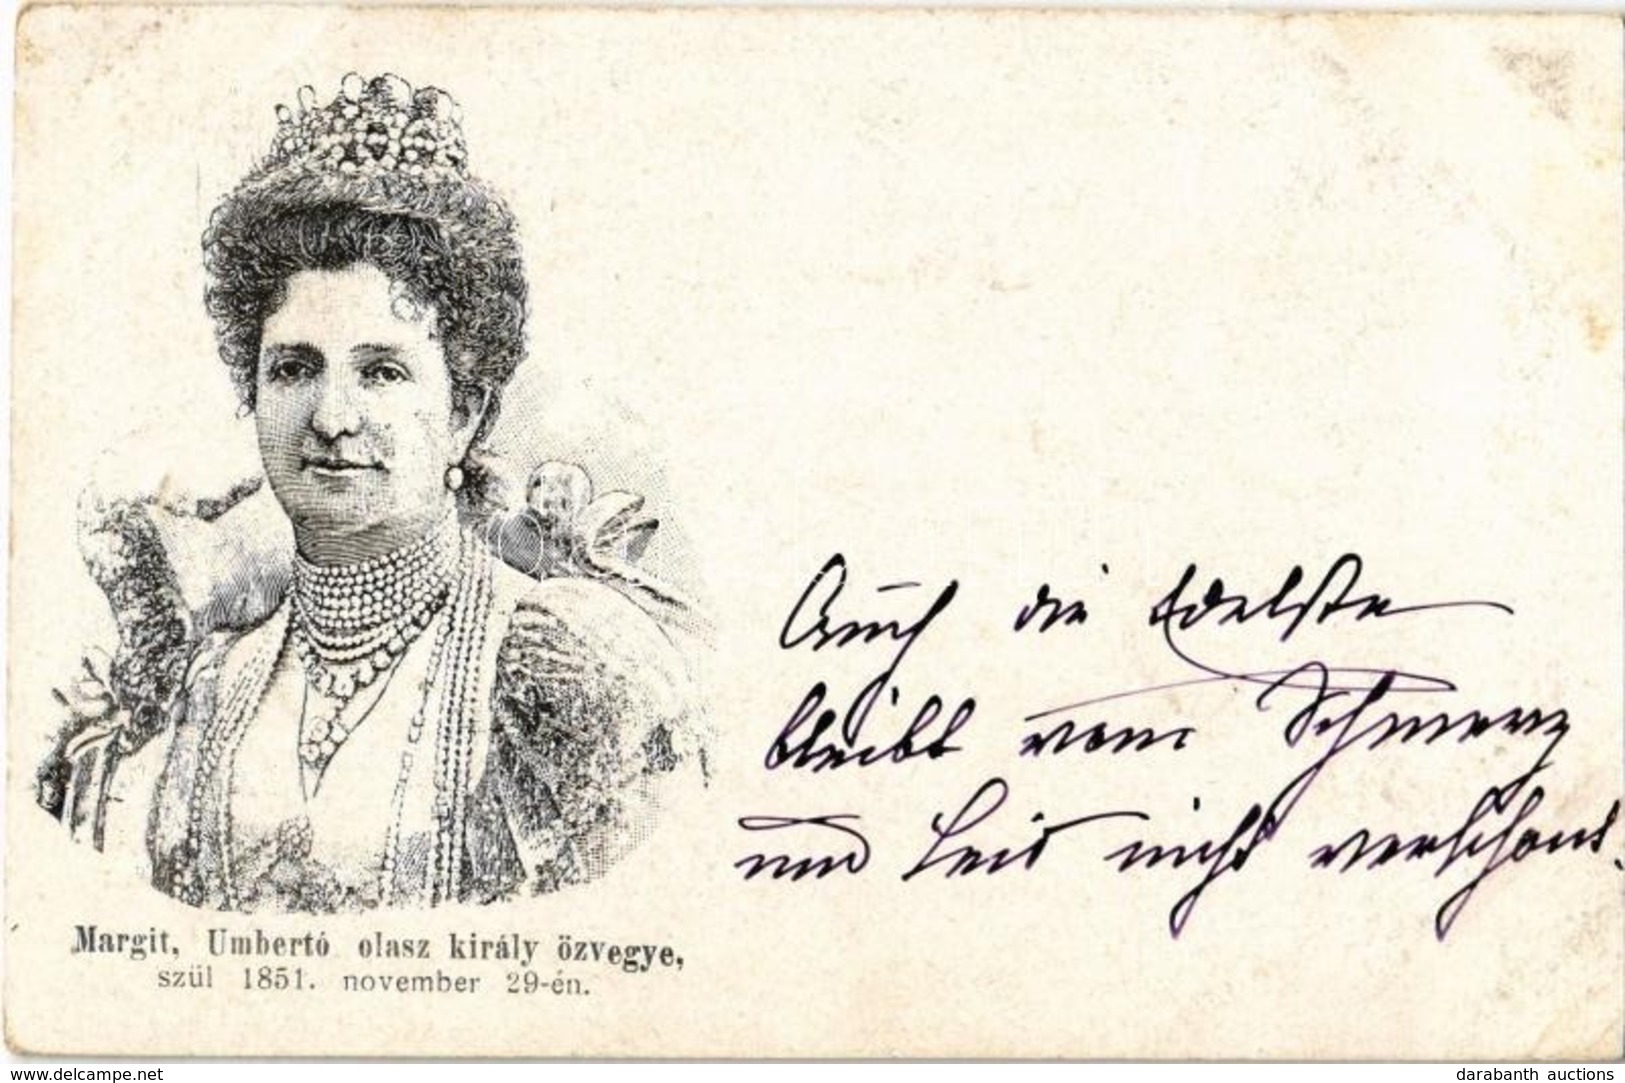 Auch die Edelste
bleibt vom Schmerz
und Leid nicht verschont.
Margit, Umbertó olasz király özvegye,
szül 1851. november 29-én.
www.delcampe.net
darabanth_auctions